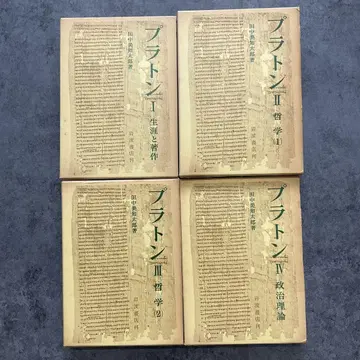 プラトン I
生涯と著作
田中美知太郎著
岩波書店刊
プラトン II
哲学(1)
田中美知太郎著
岩波書店刊
プラトン III
哲学(2)
田中美知太郎著
岩波書店刊
プラトン IV
政治理論
田中美知太郎著
岩波書店刊